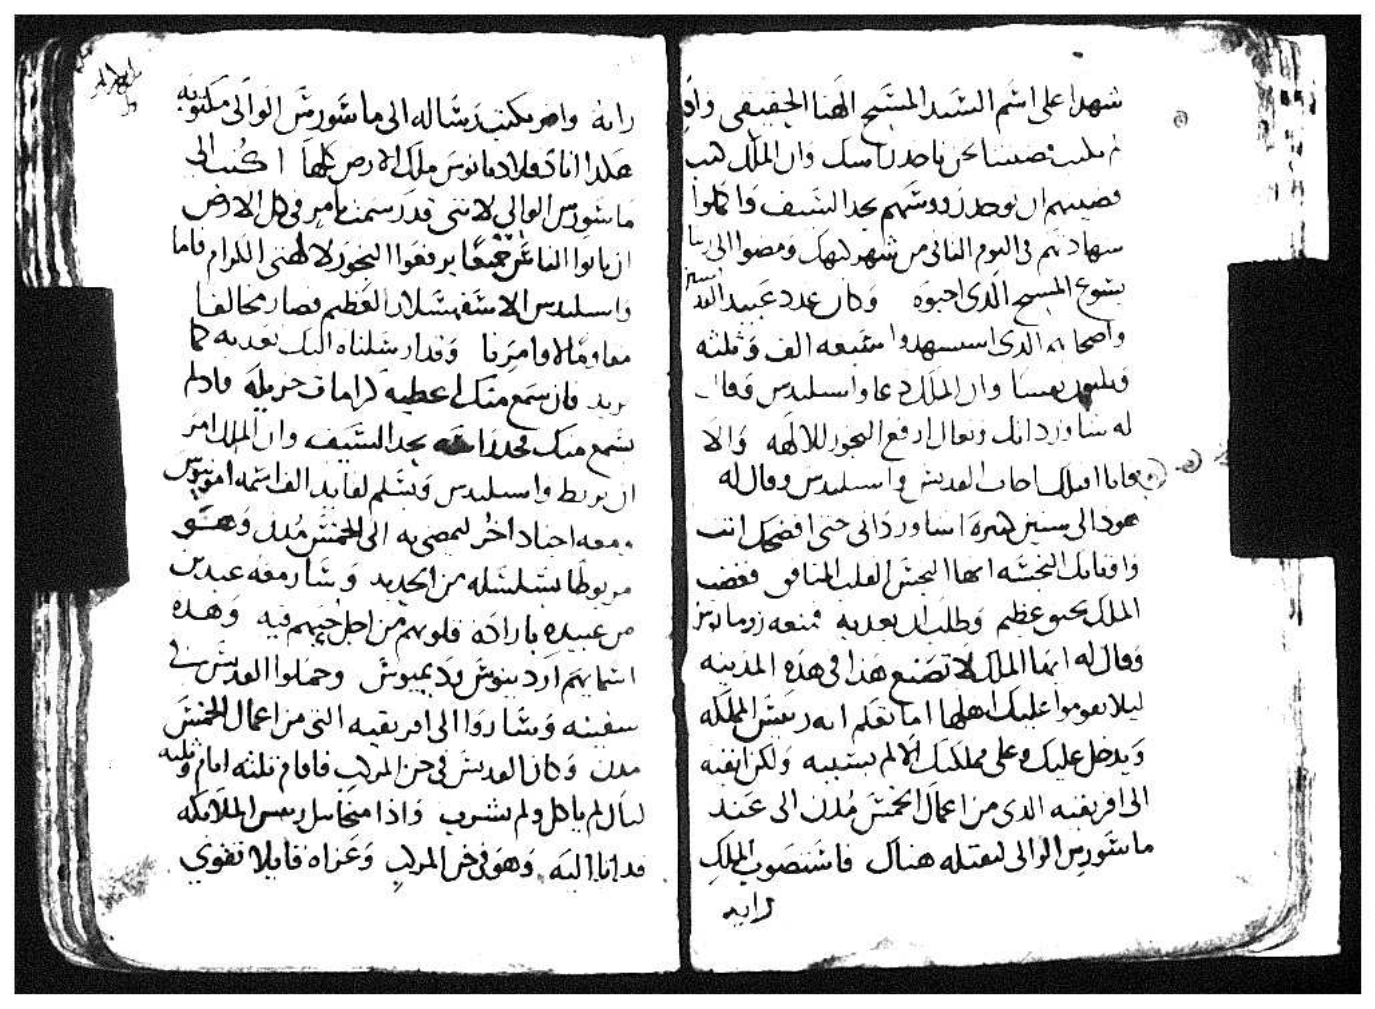 شهدا على اسم السيد المسيح الهنا الحقيقي وان
لم يطيب نحن ناخد وان الملك كتب
قضيتهم ان توخد رووسهم بحد السيف واكملوا
سهادتهم في اليوم الثاني من شهر كيهك ومضوا الى ربنا
يسوع المسيح الدى احبوه وكان عدد عبيد القديس
واصحابه الدى استسهدوا سبعه الف وثلثه
وثلثون نفسا وان الملك دعا واسيليدس وقال
له ساوردانك وتعال ارفع البخور للالهه والا
فانا اقتلك اجاب القديس واسيليدس وقال له
هودا لى سنين كثيرة اساوردانى حتى افضحك انت
واوثانك النجسه ايها النجس القلب المنافق فغضب
الملك بحنق عظيم وطلب ان يعدبه فمنعه رومانيس
وقال له ايها الملك لا تصنع هذا في هذه المدينه
ليلا يقوموا عليك اهلها اما تعلم انه رييس المملكه
ويدخل عليك وعلى مملكتك الالم بسببه ولكن انفيه
الى افريقيه الدى من اعمال الخمس مدن الى عند
ماسورس الوالى ليقتله هناك فاستصوب الملك
رايه
رايه وامر بكتب رساله الى ماسورس الوالى مكتوبه
هكدا انا دقلاديانوس ملك الارض كلها اكتب الى
ماسورس الوالي لاننى قد رسمت بامر في كل الارض
ان ياتوا الناس جميعا يرفعوا البخور لالهتى الكرام فاما
واسيليدس الاسفهسلار العظيم فصار مخالفا
مقاوما لاوامرنا وقد ارسلناه اليك تعدبه كما
تريد فان سمع منك اعطيه كرامات جزيله وادلم
يسمع منك فخد راسه بحد السيف وان الملك امر
ان يربط واسيليدس ويسلم لقايد الف اسمه
ومعه اجناد اخر ليمضى به الى الخمس مدن وهو
مربوطا بسلسله من الحديد وسار معه عبدين
من عبيده باراده قلوبهم من اجل حبهم فيه وهده
اسماءهم اردينوس وديميوس وحملوا القديس في
سفينه وساروا الى افريقيه التى من اعمال الخمس
مدن وكان القديس في خن المركب فاقام ثلثه ايام وثلثه
ليال لم ياكل ولم يشرب واذا ميخاييل رييس الملايكه
قد اتا اليه وهو في خن المركب وعزاه قايلا تقوي